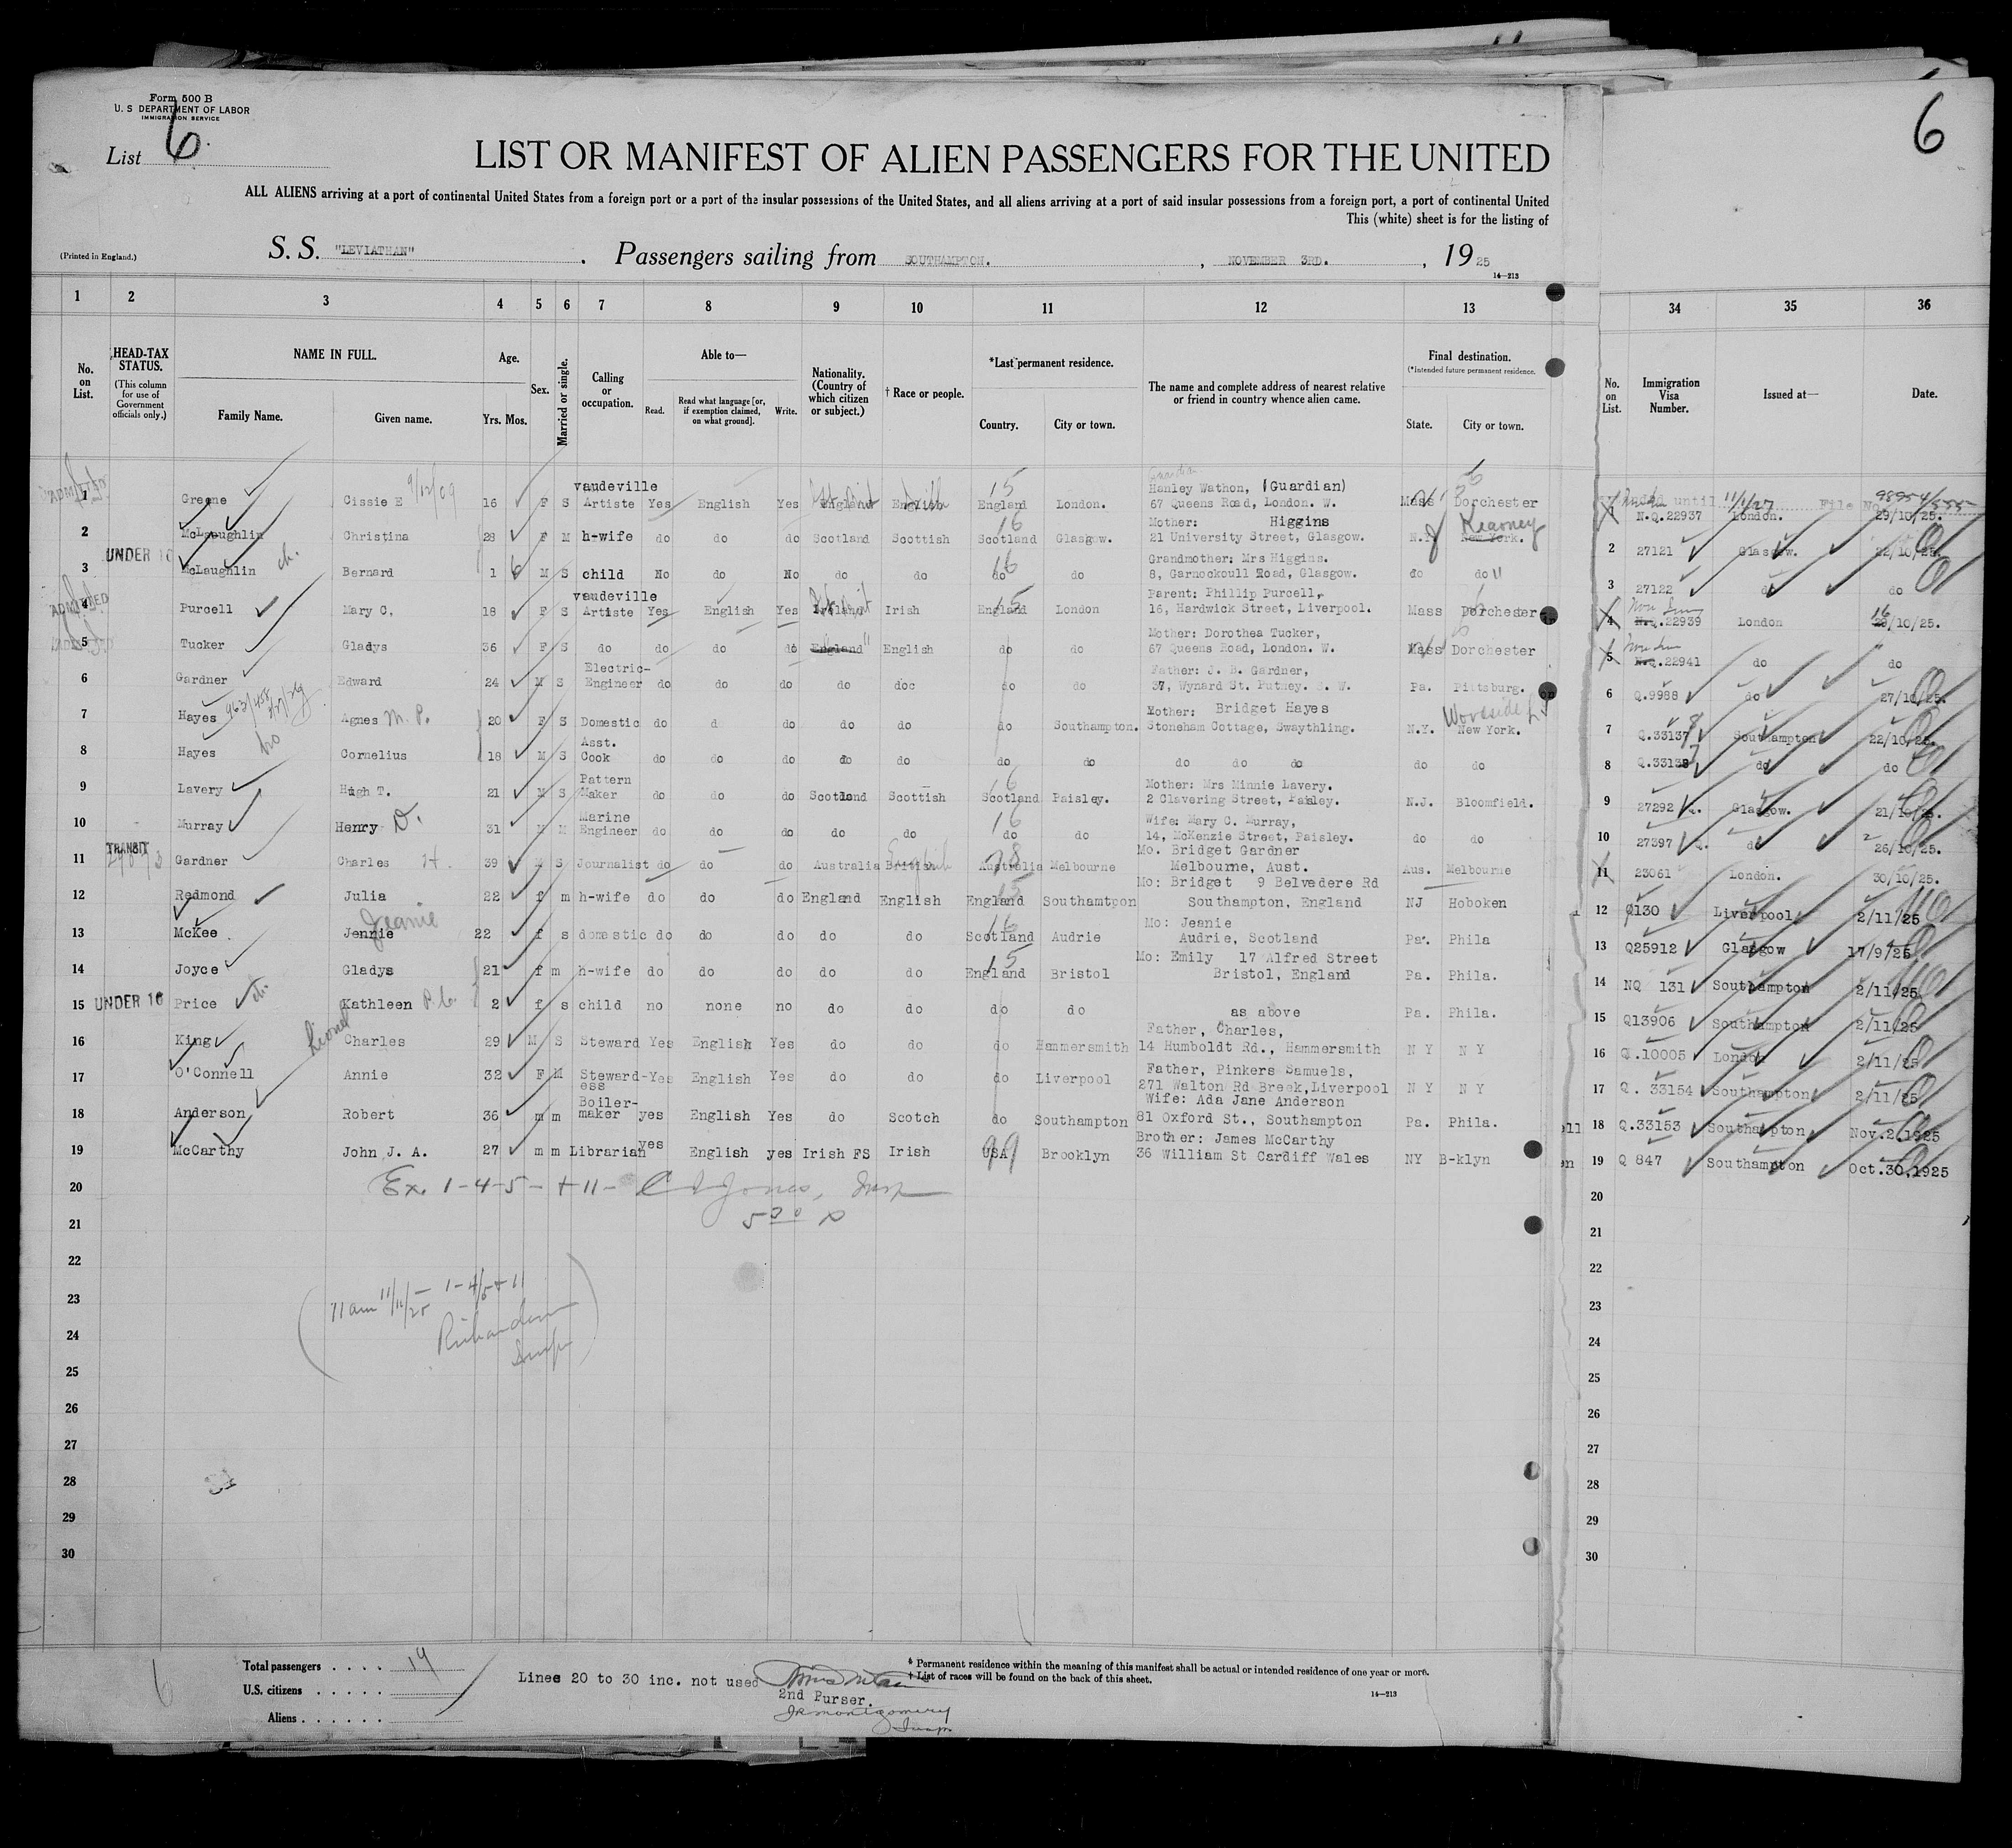 Form 500 B
U. S DEPARTMENT OF LABOR
IMMIGRATION SERVICE
List 6
6
LIST OR MANIFEST OF ALIEN PASSENGERS FOR THE UNITED
ALL ALIENS arriving at a port of continental United States from a foreign port or a port of the insular possessions of the United States, and all aliens arriving at a port of said insular possessions from a foreign port, a port of continental United
This (white) sheet is for the listing of
(Printed in England.) S. S. "LEVIATHAN" . Passengers sailing from SOUTHAMPTON. , NOVEMBER 3RD. , 1925
14-213
1 2 3 4 5 6 7 8 9 10 11 12 13 34 35 36
No. on List. HEAD-TAX STATUS. (This column for use of Government officials only.) NAME IN FULL. Family Name. Given name. Age. Yrs. Mos. Sex. Married or single. Calling or occupation. Able to— Read. Read what language [or, if exemption claimed, on what ground]. Write. Nationality. (Country of which citizen or subject.) † Race or people. *Last permanent residence. Country. City or town. The name and complete address of nearest relative or friend in country whence alien came. Final destination. (*Intended future permanent residence. State. City or town. No. on List. Immigration Visa Number. Issued at— Date.
ADMITTED 1 Greene Cissie E 9/12/09 16 F S vaudeville Artiste Yes English Yes England English 15 England London. Hanley Wathon, (Guardian) 67 Queens Road, London. W. Mass Dorchester 1 N.Q.22937 London. 29/10/25. until 11/1/27 File No 98954/555
2 McLaughlin Christina 28 F M h-wife do do do Scotland Scottish 16 Scotland Glasgow. Mother: Higgins 21 University Street, Glasgow. N.J New York. Kearney 2 27121 Glasgow. 22/10/25.
3 UNDER 16 McLaughlin ch. Bernard 1 6 M S child No do No do do 16 do do Grandmother: Mrs Higgins. 8, Garnockoull Road, Glasgow. do do " 3 27122 do do
ADMITTED 4 Purcell Mary C. 18 F S vaudeville Artiste Yes English Yes Ireland Irish 15 England London Parent: Phillip Purcell, 16, Hardwick Street, Liverpool. Mass Dorchester 4 N.Q.22939 London 16/10/25.
5 Tucker Gladys 36 F S do do do do England " English do do Mother: Dorothea Tucker, 67 Queens Road, London. W. Mass Dorchester 5 N.Q.22941 do do
6 Gardner Edward 24 M S Electric-Engineer do do do do doc do do Father: J. B. Gardner, 37, Wynard St. Putney. S. W. Pa. Pittsburg. 6 Q.9988 do 27/10/25.
7 Hayes Agnes M. P. 20 F S Domestic do d do do do do Southampton. Mother: Bridget Hayes Stoneham Cottage, Swaythling. N.Y. New York. Woodside L I 7 Q.33137 8 Southampton 22/10/25.
8 Hayes Cornelius 18 M S Asst. Cook do do do do do do do do do do do do 8 Q.33138 7 do do
9 Lavery Hugh T. 21 M S Pattern Maker do do do Scotland Scottish 16 Scotland Paisley. Mother: Mrs Minnie Lavery. 2 Clavering Street, Paisley. N.J. Bloomfield. 9 27292 Glasgow. 21/10/25.
10 Murray Henry D. 31 M M Marine Engineer do do do do do 16 do do Wife: Mary C. Murray, 14, McKenzie Street, Paisley. do do 10 27397 do 26/10/25.
11 TRANSIT Gardner Charles H. 39 M S Journalist do do do Australia British English 28 Australia Melbourne Mo. Bridget Gardner Melbourne, Aust. Aus. Melbourne 11 23061 London. 30/10/25.
12 Redmond Julia 22 f m h-wife do do do England English 15 England Southamtpon Mo: Bridget 9 Belvedere Rd Southampton, England NJ Hoboken 12 Q130 Liverpool 2/11/25
13 McKee Jennie Jeanie 22 f s domestic do do do do do 16 Scotland Audrie Mo: Jeanie Audrie, Scotland Pa. Phila 13 Q25912 Glasgow 17/9/25
14 Joyce Gladys 21 f m h-wife do do do do do 15 England Bristol Mo: Emily 17 Alfred Street Bristol, England Pa. Phila. 14 NQ 131 Southampton 2/11/25
15 UNDER 16 Price ch. Kathleen 2 f s child no none no do do do do as above Pa. Phila. 15 Q13906 Southampton 2/11/25
16 King Lionel Charles 29 M S Steward Yes English Yes do do do Hammersmith Father, Charles, 14 Humboldt Rd., Hammersmith N Y N Y 16 Q.10005 London 2/11/25
17 O'Connell Annie 32 F M Steward-ess Yes English Yes do do do Liverpool Father, Pinkers Samuels, 271 Walton Rd Breek,Liverpool N Y N Y 17 Q. 33154 Southampton 2/11/25
18 Anderson Robert 36 m m Boiler-maker yes English Yes do Scotch do Southampton Wife: Ada Jane Anderson 81 Oxford St., Southampton Pa. Phila. 18 Q.33153 Southampton Nov.2.1925
19 McCarthy John J. A. 27 m m Librarian yes English yes Irish FS Irish 99 USA Brooklyn Brother: James McCarthy 36 William St Cardiff Wales NY B-klyn 19 Q 847 Southampton Oct.30.1925
20 Ex. 1-4-5-+11- C D Jones, Insp 20
21 530 P 21
22 22
23 11 am 11/11/25 - 1-4/5+11 23
24 Richardson Insp 24
25 25
26 26
27 27
28 28
29 29
30 30
6 Total passengers . . . . 19
U.S. citizens . . . . . .
Aliens . . . . . .
Lines 20 to 30 inc. not used
2nd Purser.
J R Montgomery
Insp
* Permanent residence within the meaning of this manifest shall be actual or intended residence of one year or more.
† List of races will be found on the back of this sheet.
14-213